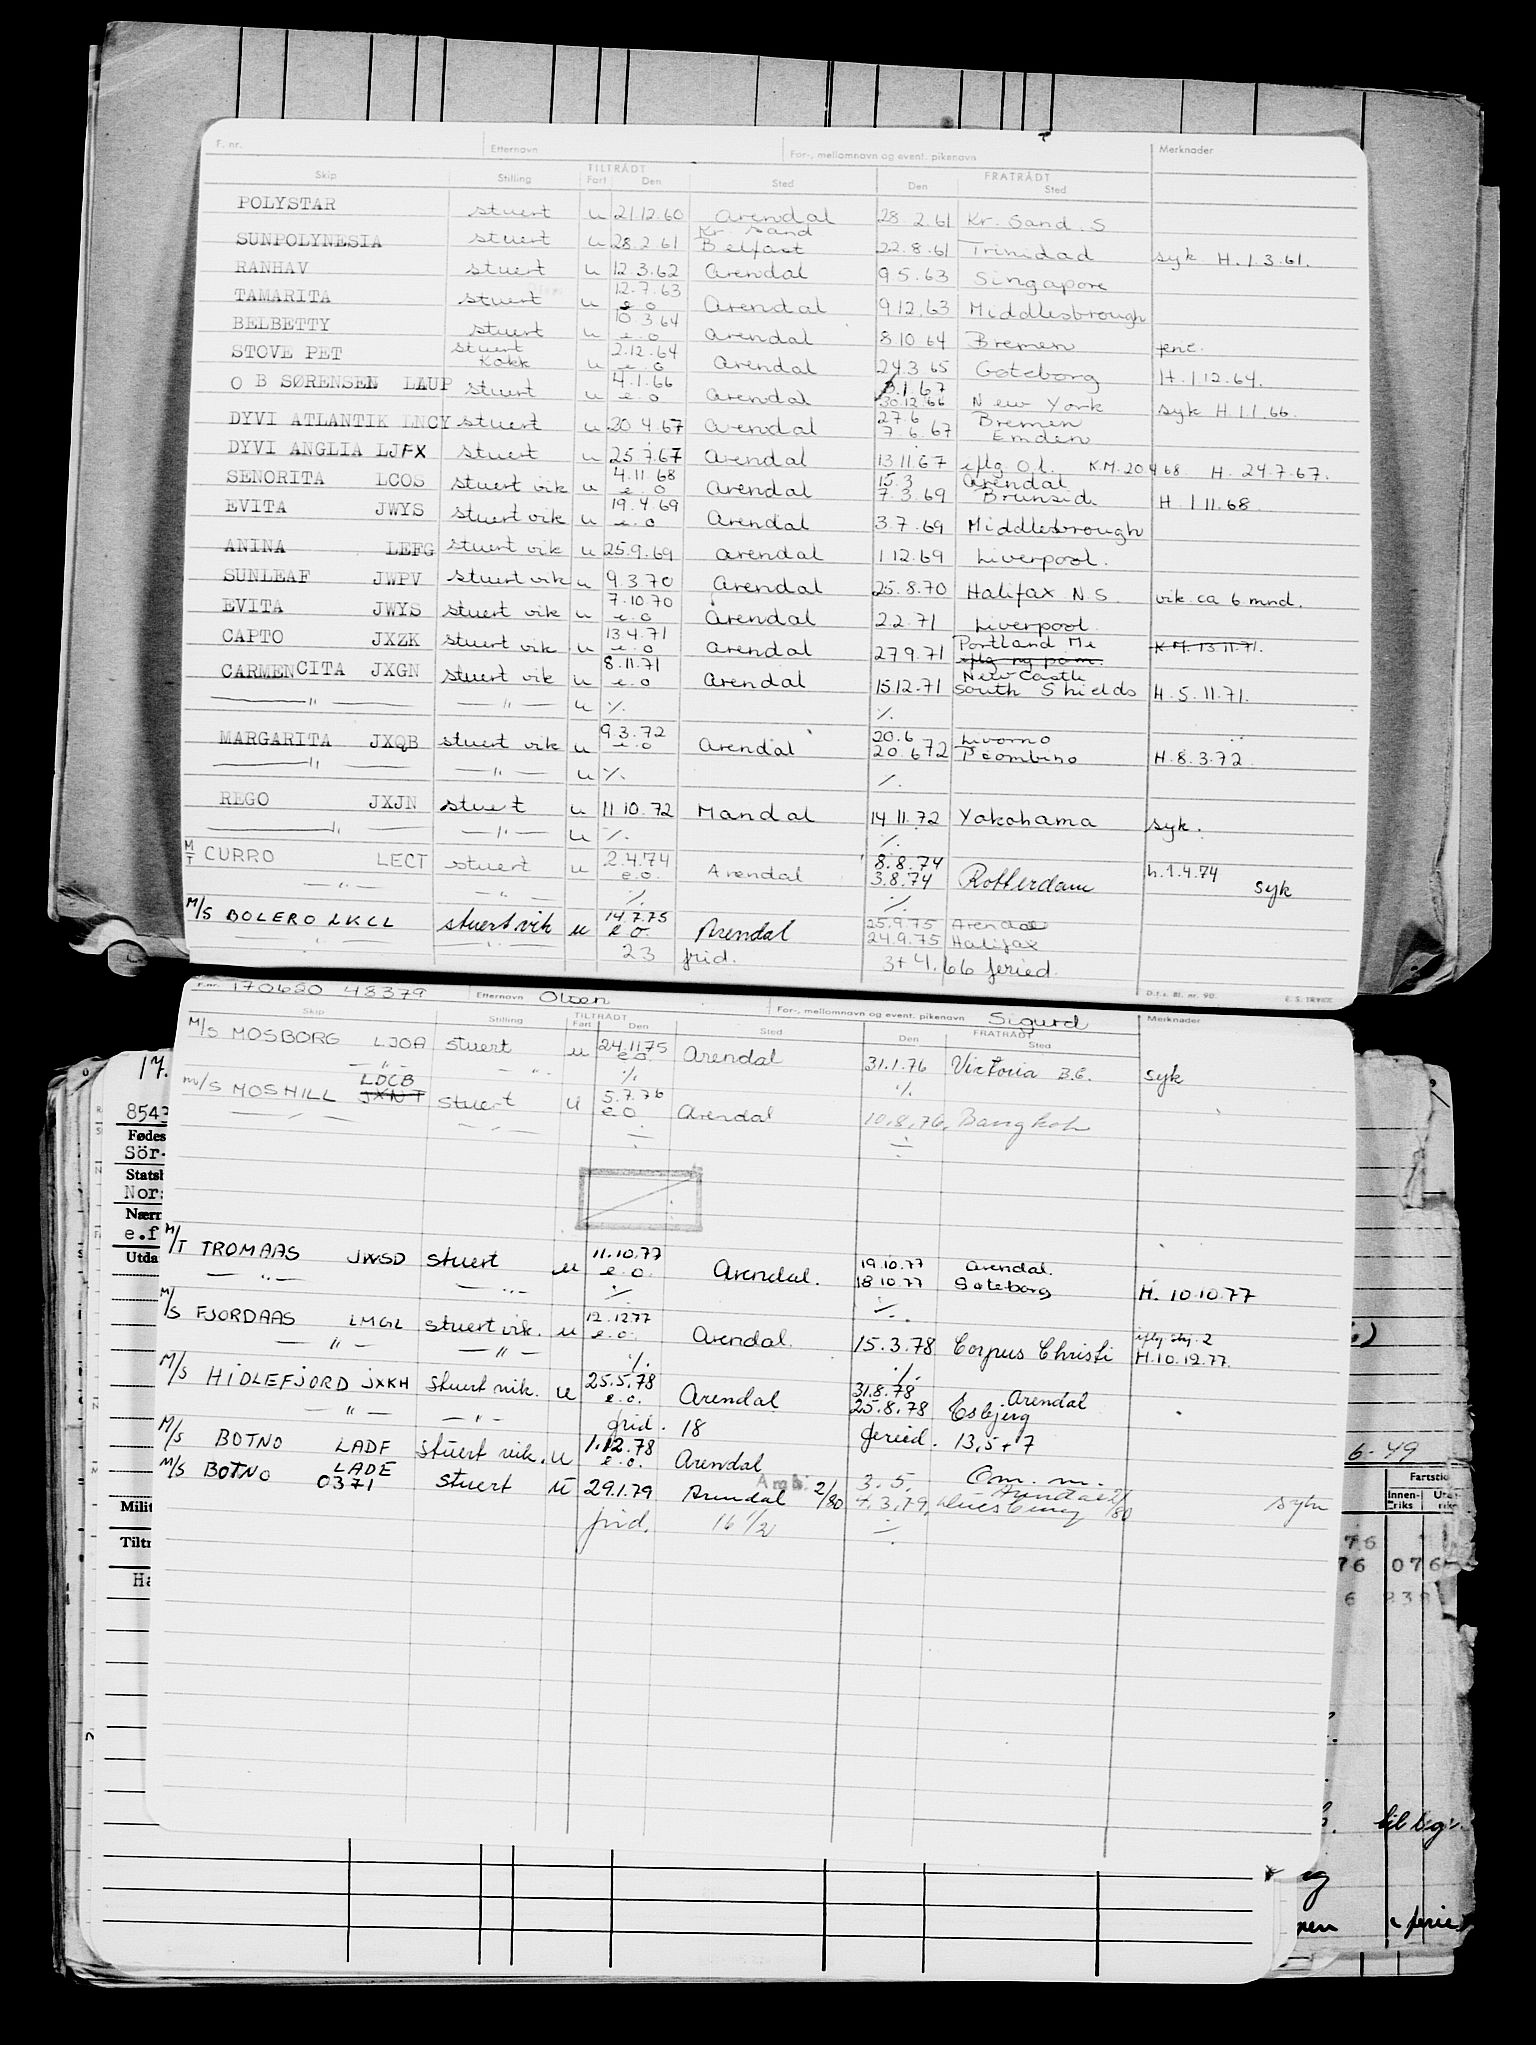 F. nr. Etternavn For-, mellomnavn og event. pikenavn Merknader
TILTRÅDT FRATRÅDT
Skip Stilling Fart Den Sted Den Sted
POLYSTAR stuert u 21.12.60 Arendal 28.2.61 Kr. Sand. S
Kr. Sand
SUNPOLYNESIA stuert u 28.2.61 Belfast 22.8.61 Trinidad syk H. 1 3.61.
RANHAV stuert u 12.3.62 Arendal 9.5.63 Singapore
12.7.63
TAMARITA stuert u e.o Arendal 9.12.63 Middlesbrough
10.3.64
BELBETTY stuert u e.o Arendal 8.10.64 Bremen ferie.
stuert 2.12.64
STOVE PET Kokk u e.o Arendal 24.3.65 Goteborg H. 1 12.64.
4.1.66 3.1.67
O B SØRENSEN LAUP stuert u e.o Arendal 30.12.66 New York syk H. 1.1.66.
27.6 Bremen
DYVI ATLANTIK LNCY stuert u 20.4.67 Arendal 7.6.67 Emden
DYVI ANGLIA LJFX stuert u 25.7.67 Arendal 13.11.67 eflg. o.l. K.M. 20.4.68. H. 24.7.67.
4.11.68 15.3 Arendal
SENORITA LCOS stuert vik u e.o Arendal 7.3.69 H. 1 11.68
19.4.69
EVITA JWYS stuert vik u e.o Arendal 3.7.69 Middlesbrough
ANINA LEFG stuert vik u 25.9.69 Arendal 1 12.69 Liverpool.
SUNLEAF JWPV stuert vik u 9.3.70 Arendal 25.8.70 Halifax N S vik. ca 6 mnd.
7.10.70
EVITA JWYS stuert vik u e.o Arendal 2.2.71 Liverpool.
13.4.71 Portland Me
CAPTO JXZK stuert vik u e.o Arendal 27.9.71 K.M. 13.11.71.
8.11.71 New Castle
CARMENCITA JXGN stuert vik u e.o Arendal 15.12.71 South Shields H. 5.11.71.
—"— —"— u ⁒ ⁒
9.3.72 20.6 Livorno
MARGARITA JXQB stuert vik u e.o Arendal 20.6.72 Piombino H. 8.3.72
—"— —"— u ⁒ ⁒
REGO JXJN stuert u 11.10.72 Mandal 14.11.72 Yokohama syk.
—"— —"— u ⁒ ⁒
2.4.74 8.8.74
M/T CURRO LECT stuert u e.o. Arendal 3.8.74 Rotterdam h. 1.4.74 syk
—"— —"— ⁒ ⁒
14.7.75 25.9.75 Arendal
M/S BOLERO LKCL stuert vik u e.o. Arendal 24.9.75 Halifax
" " 23 frid. 3+4.66 feried.
D.f.s. Bl. nr. 90. E. S. TRYKK
F.nr. 170620 48379 Etternavn Olsen For-, mellomnavn og event. pikenavn Sigurd Merknader
TILTRÅDT FRATRÅDT
Skip Stilling Fart Den Sted Den Sted
24.11.75
M/S MOSBORG LJOA stuert u e.o. Arendal 31.1.76 Victoria B.C. syk
—"— —"— ⁒ ⁒
LDCB 5.7.76
M/S MOSHILL JXNT stuert u e.o Arendal 10.8.76. Bangkok
11.10.77 19.10.77 Arendal.
M/T TROMAAS JWSD stuert u e.o. Arendal. 18.10.77 Gøteborg H. 10.10.77
—"— —"— ⁒ ⁒
12.12.77
M/S FJORDAAS LMGL stuert vik. u e.o. Arendal. 15.3.78 Corpus Christi H. 10.12.77.
—"— —"— ⁒ ⁒
25.5.78 31.8.78 Arendal
M/S HIDLEFJORD JXKH stuert vik. u e.o. Arendal 25.8.78 Esbjerg
—"— —"— frid. 18 feried. 13,5+7
1.12.78
M/S BOTNO LADF stuert vik. u e.o. Arendal 3.5. Om. m.
LADE
M/S BOTNO 0371 stuert u 29.1.79 Arendal 2/80 4.3.79, 2/80 syk
frid. 16 1/2 ⁒
17.
854
Fødes
Sör-
Stats
Nor
Nærm
e.f
Utda
Milit
Tiltr
Ha
6-49
Fartstid
Innen-riks
76
76 076
til beg.
ferie